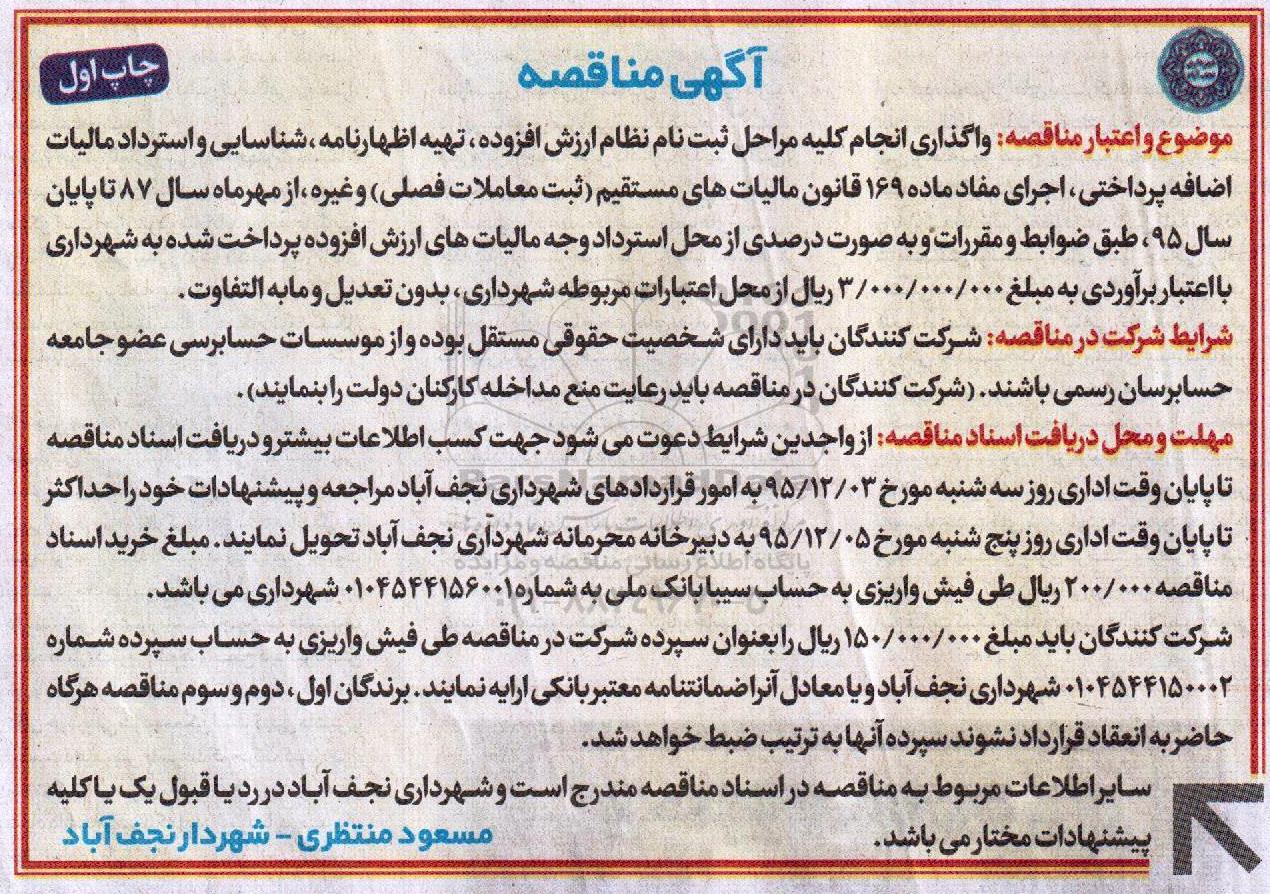 چاپ اول
آگهی مناقصه
موضوع و اعتبار مناقصه: واگذاری انجام کلیه مراحل ثبت نام نظام ارزش افزوده، تهیه اظهارنامه، شناسایی و استرداد مالیات
اضافه پرداختی، اجرای مفاد ماده ۱۶۹ قانون مالیات های مستقیم (ثبت معاملات فصلی) و غیره، از مهرماه سال ۸۷ تا پایان
سال ۹۵، طبق ضوابط و مقررات و به صورت درصدی از محل استرداد وجه مالیات های ارزش افزوده پرداخت شده به شهرداری
با اعتبار برآوردی به مبلغ ۳/۰۰۰/۰۰۰/۰۰۰ ریال از محل اعتبارات مربوطه شهرداری، بدون تعدیل و مابه التفاوت.
شرایط شرکت در مناقصه: شرکت کنندگان باید دارای شخصیت حقوقی مستقل بوده و از موسسات حسابرسی عضو جامعه
حسابرسان رسمی باشند. (شرکت کنندگان در مناقصه باید رعایت منع مداخله کارکنان دولت را بنمایند).
مهلت و محل دریافت اسناد مناقصه: از واجدین شرایط دعوت می شود جهت کسب اطلاعات بیشتر و دریافت اسناد مناقصه
تا پایان وقت اداری روز سه شنبه مورخ ۹۵/۱۲/۰۳ به امور قراردادهای شهرداری نجف آباد مراجعه و پیشنهادات خود را حداکثر
تا پایان وقت اداری روز پنج شنبه مورخ ۹۵/۱۲/۰۵ به دبیرخانه محرمانه شهرداری نجف آباد تحویل نمایند. مبلغ خرید اسناد
مناقصه ۲۰۰/۰۰۰ ریال طی فیش واریزی به حساب سیبا بانک ملی به شماره ۰۱۰۴۵۴۴۱۵۶۰۰۱ شهرداری می باشد.
شرکت کنندگان باید مبلغ ۱۵۰/۰۰۰/۰۰۰ ریال را بعنوان سپرده شرکت در مناقصه طی فیش واریزی به حساب سپرده شماره
۰۱۰۴۵۴۴۱۵۰۰۰۲ شهرداری نجف آباد و یا معادل آنرا ضمانتنامه معتبر بانکی ارایه نمایند. برندگان اول، دوم و سوم مناقصه هرگاه
حاضر به انعقاد قرارداد نشوند سپرده آنها به ترتیب ضبط خواهد شد.
سایر اطلاعات مربوط به مناقصه در اسناد مناقصه مندرج است و شهرداری نجف آباد در رد یا قبول یک یا کلیه
پیشنهادات مختار می باشد.
مسعود منتظری - شهردار نجف آباد
پایگاه اطلاع رسانی مناقصه و مزایده